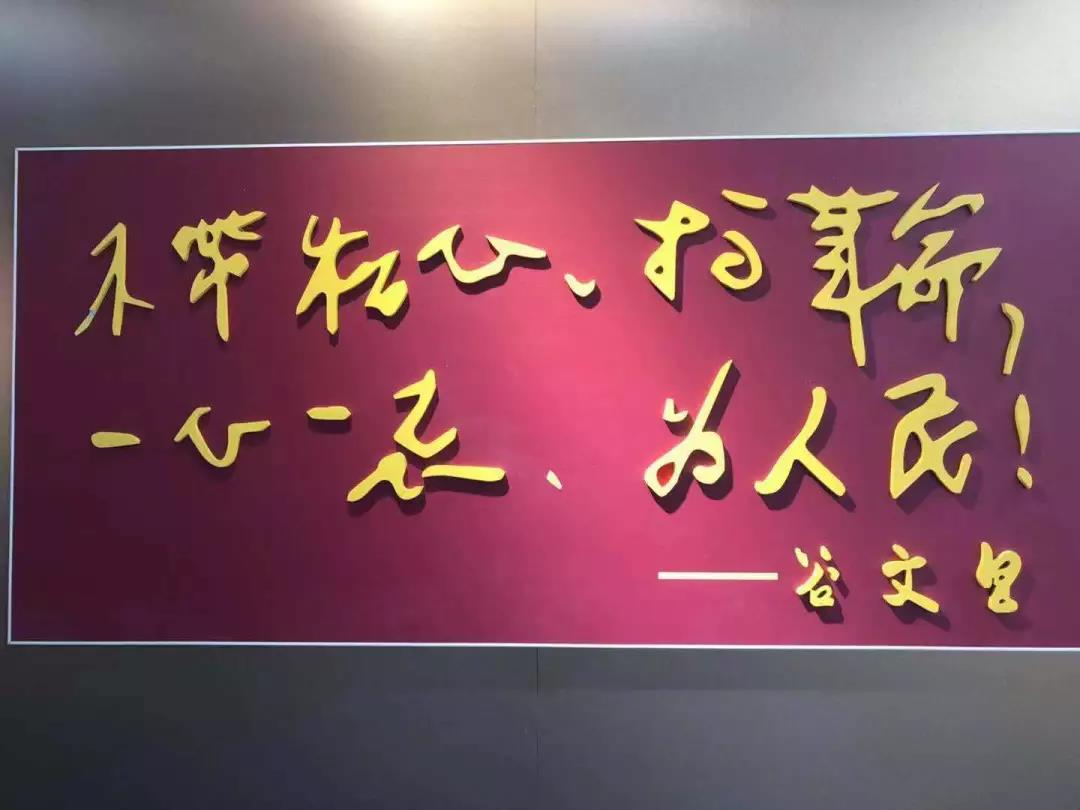 不带私心、搞革命，
一心一意、为人民！
——谷文昌